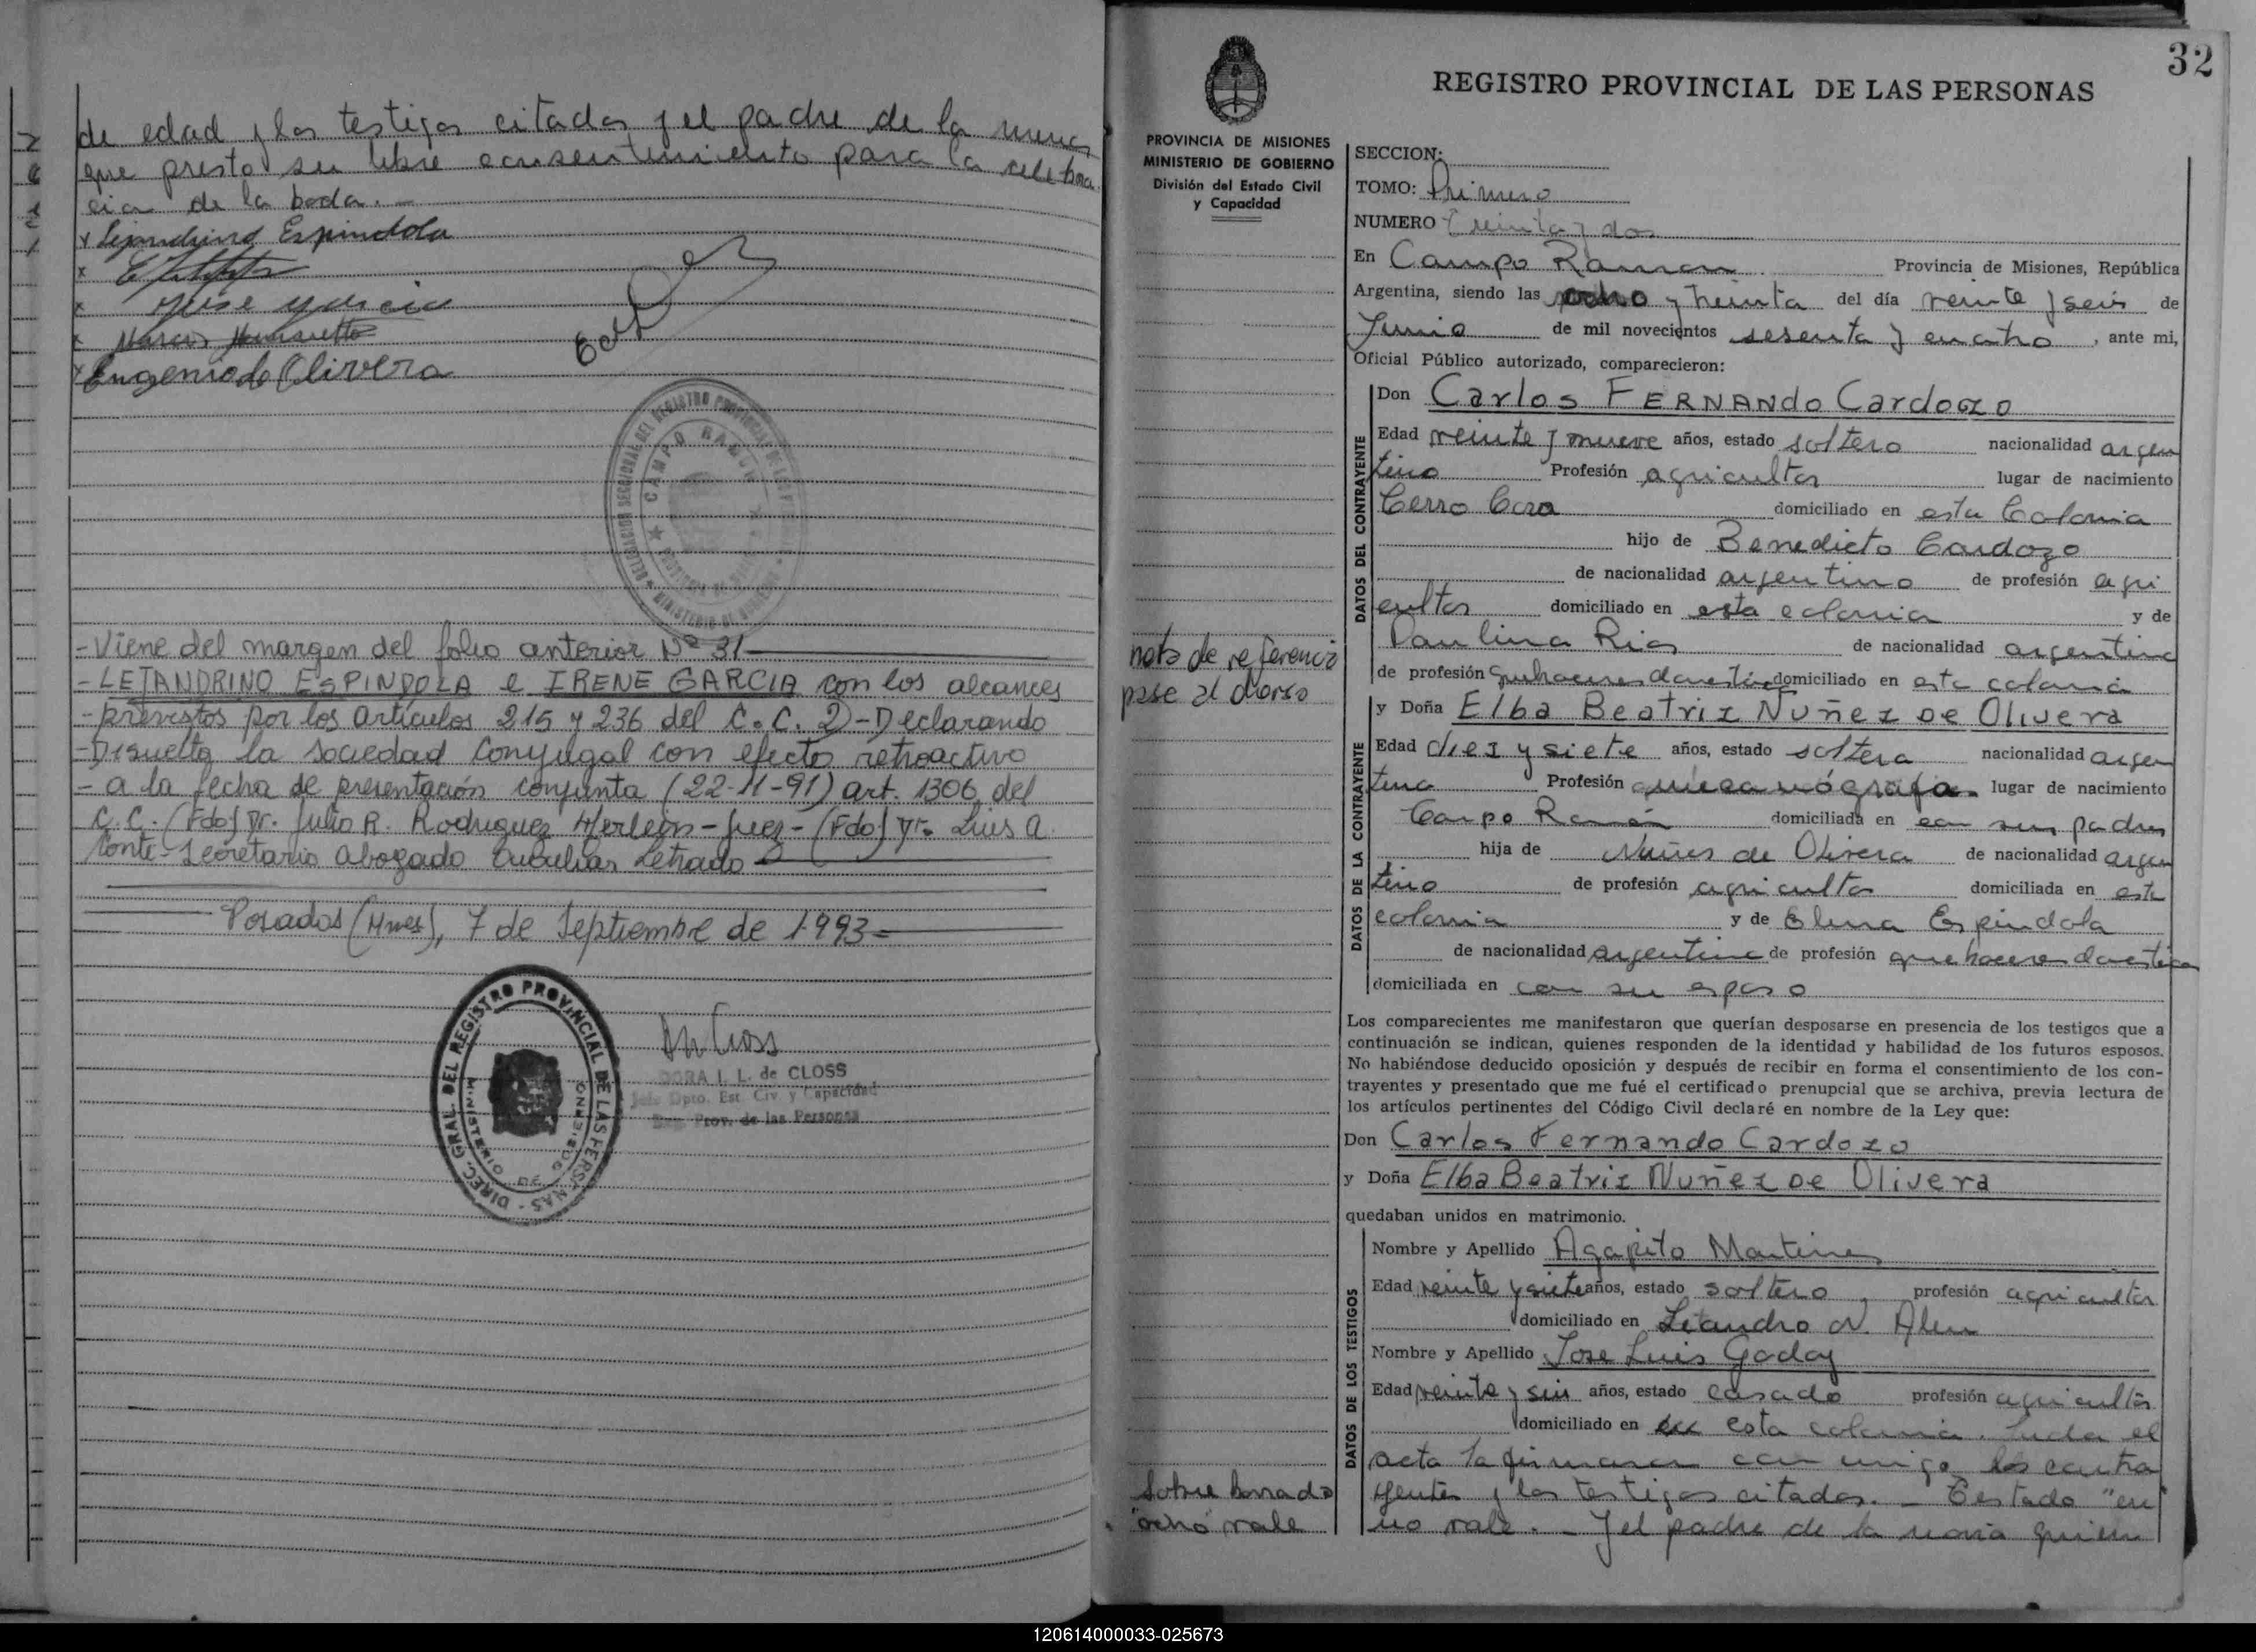 de edad y los testigos citados y el padre de la menor
que presto su libre consentimiento para la celebra
cion de la boda. -
x Lejandrino Espindola
x
x Jose Garcia
x Marcos
x Eugenio de Olivera
DELEGACION SECCIONAL DEL REGISTRO PROVINCIAL DE LAS P
CAMPO RAMON
MINISTERIO DE GOBIERNO
- Viene del margen del folio anterior Nº 31
- LEJANDRINO ESPINDOLA e IRENE GARCIA con los alcances
- previstos por los artículos 215 y 236 del C.C. 2)- Declarando
- Disuelta la sociedad conyugal con efecto retroactivo
- a la fecha de presentación conjunta (22-11-91) art. 1306 del
C.C. (Fdo) Dr. Julio R. Rodriguez - Juez - (Fdo) Dr. Luis A.
Conte - Secretario Abogado Auxiliar Letrado
Posadas (Mnes), 7 de Septiembre de 1993
DIREC. GRAL. DEL REGISTRO PROVINCIAL DE LAS PERSONAS
DORA I. L. de CLOSS
Jefe Dpto. Est. Civ. y Capacidad
Prov. de las Personas
32
REGISTRO PROVINCIAL DE LAS PERSONAS
PROVINCIA DE MISIONES
MINISTERIO DE GOBIERNO
División del Estado Civil
y Capacidad
SECCION:
TOMO: Primero
NUMERO Treinta y dos
En Campo Ramon Provincia de Misiones, República
Argentina, siendo las ocho y treinta del día veinte y seis de
Junio de mil novecientos sesenta y cuatro, ante mi,
Oficial Público autorizado, comparecieron:
DATOS DEL CONTRAYENTE
Don Carlos FERNANDO Cardozo
Edad veinte y nueve años, estado soltero nacionalidad argen
tino Profesión agricultor lugar de nacimiento
Cerro Cora domiciliado en esta Colonia
hijo de Benedicto Cardozo
de nacionalidad argentino de profesión agri
cultor domiciliado en esta colonia y de
Paulina Rios de nacionalidad argentina
de profesión quehaceres domésticos domiciliado en esta colonia
nota de referencia
pase al dorso
DATOS DE LA CONTRAYENTE
y Doña Elba Beatriz Nuñez DE Olivera
Edad diez y siete años, estado soltera nacionalidad argen
tina Profesión lugar de nacimiento
Campo Ramon domiciliada en con sus padres
hija de Nuñes de Olivera de nacionalidad argen
tino de profesión agricultor domiciliada en esta
colonia y de Elena Espindola
de nacionalidad argentina de profesión quehaceres domésticos
domiciliada en con su esposo
Los comparecientes me manifestaron que querían desposarse en presencia de los testigos que a
continuación se indican, quienes responden de la identidad y habilidad de los futuros esposos.
No habiéndose deducido oposición y después de recibir en forma el consentimiento de los con-
trayentes y presentado que me fué el certificado prenupcial que se archiva, previa lectura de
los artículos pertinentes del Código Civil declaré en nombre de la Ley que:
Don Carlos Fernando Cardozo
y Doña Elba Beatriz Nuñez DE Olivera
quedaban unidos en matrimonio.
DATOS DE LOS TESTIGOS
Nombre y Apellido Agapito Martinez
Edad veinte y siete años, estado soltero, profesión agricultor
domiciliado en Leandro N. Alem
Nombre y Apellido Jose Luis Godoy
Edad veinte y seis años, estado casado profesión agricultor
domiciliado en en esta colonia. Leida el
acta la firmaron conmigo los contra
yentes y los testigos citados. - Testado "en"
no vale. - Y el padre de la novia quien
Sobre borrado
"ocho" vale
120614000033-025673